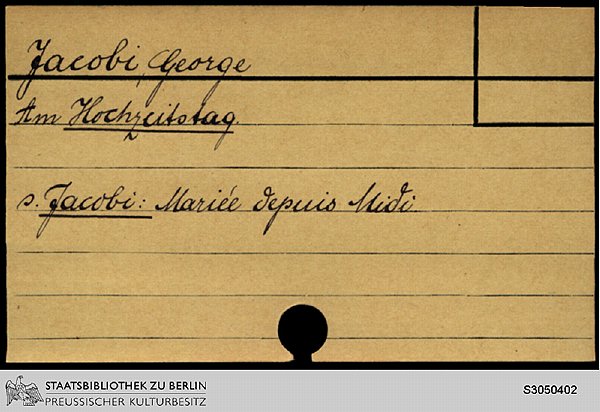 Jacobi, George
Am Hochzeitstag.
s. Jacobi: Mariée depuis Midi.
STAATSBIBLIOTHEK ZU BERLIN
PREUSSISCHER KULTURBESITZ
S3050402